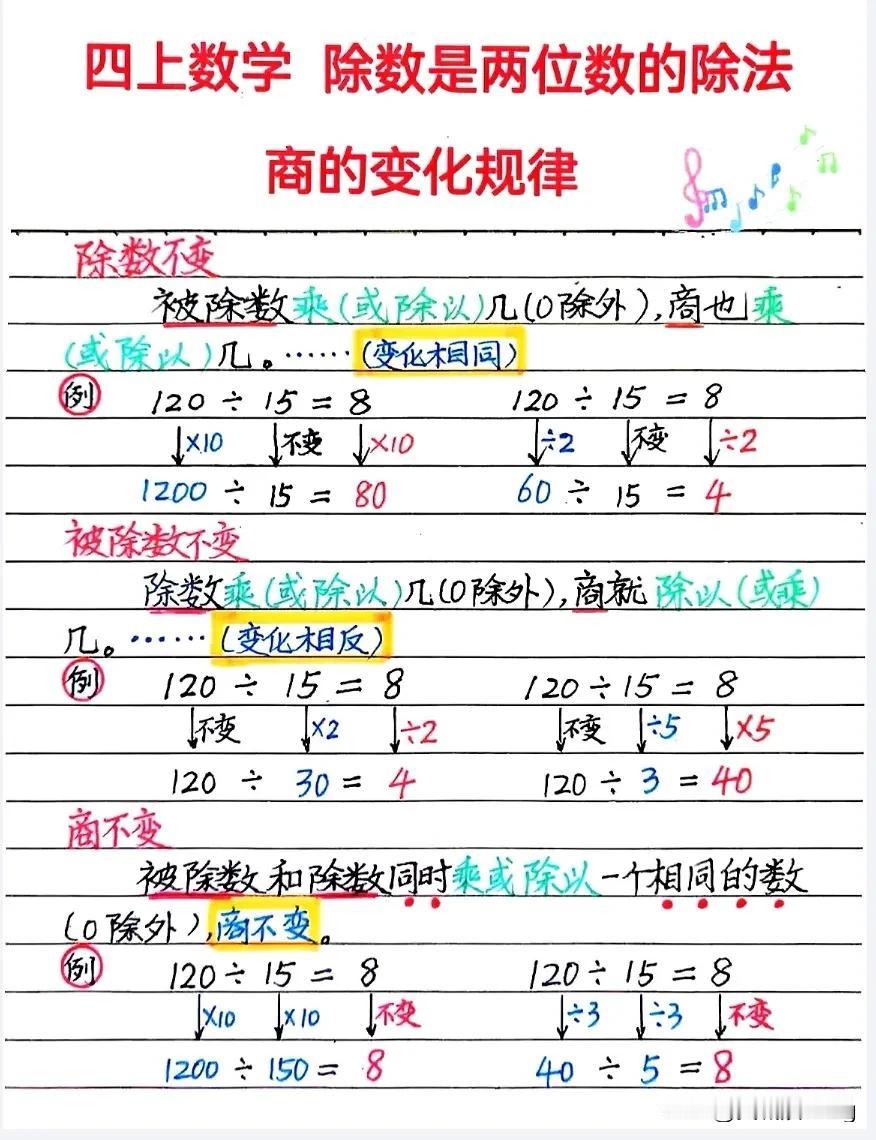 四上数学 除数是两位数的除法
商的变化规律
除数不变
被除数乘(或除以)几(0除外),商也乘
(或除以)几。……(变化相同)
例 120÷15=8 120÷15=8
↓×10 ↓不变 ↓×10 ↓÷2 ↓不变 ↓÷2
1200÷15=80 60÷15=4
被除数不变
除数乘(或除以)几(0除外),商就除以(或乘)
几。……(变化相反)
例 120÷15=8 120÷15=8
↓不变 ↓×2 ↓÷2 ↓不变 ↓÷5 ↓×5
120÷30=4 120÷3=40
商不变
被除数和除数同时乘或除以一个相同的数
(0除外),商不变。
例 120÷15=8 120÷15=8
↓×10 ↓×10 ↓不变 ↓÷3 ↓÷3 ↓不变
1200÷150=8 40÷5=8